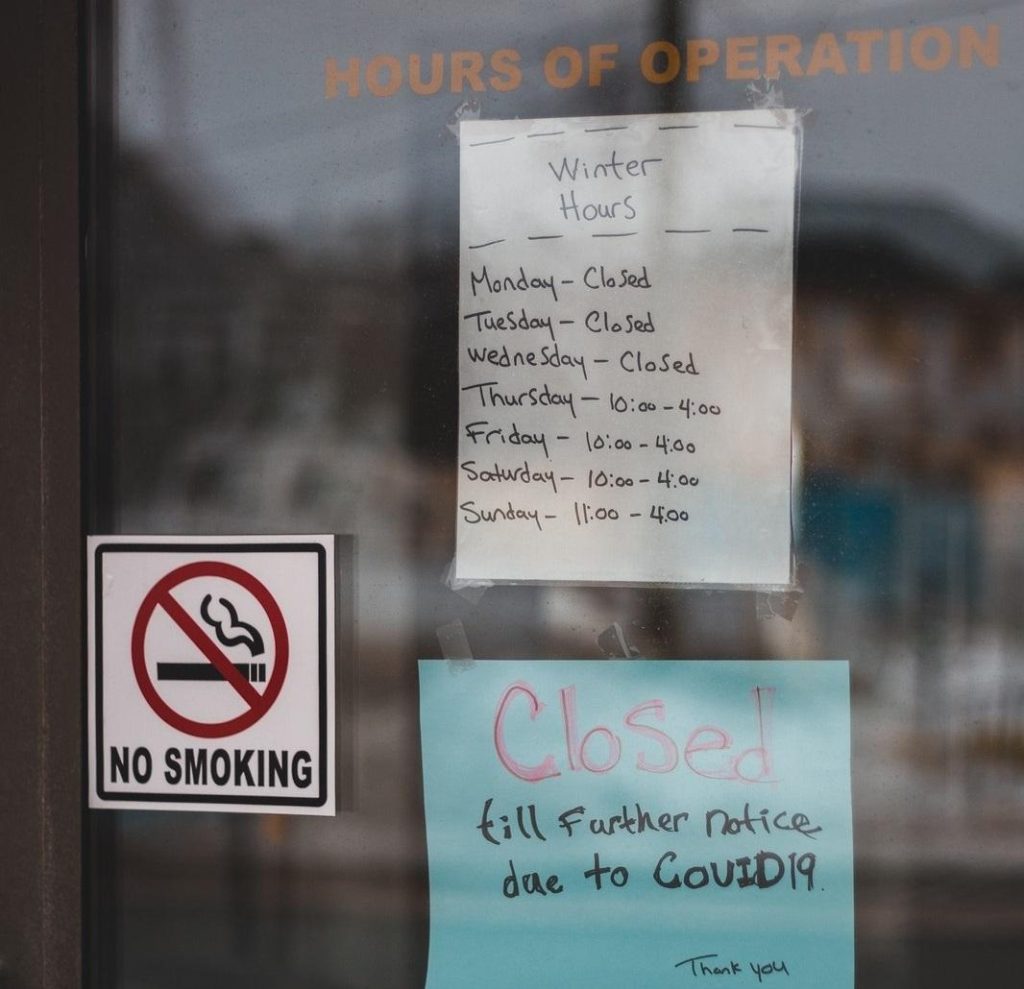 HOURS OF OPERATION
Winter
Hours
Monday - Closed
Tuesday - Closed
Wednesday - Closed
Thursday - 10:00 - 4:00
Friday - 10:00 - 4:00
Saturday - 10:00 - 4:00
Sunday - 11:00 - 4:00
NO SMOKING
Closed
till Further notice
due to COVID19.
Thank you